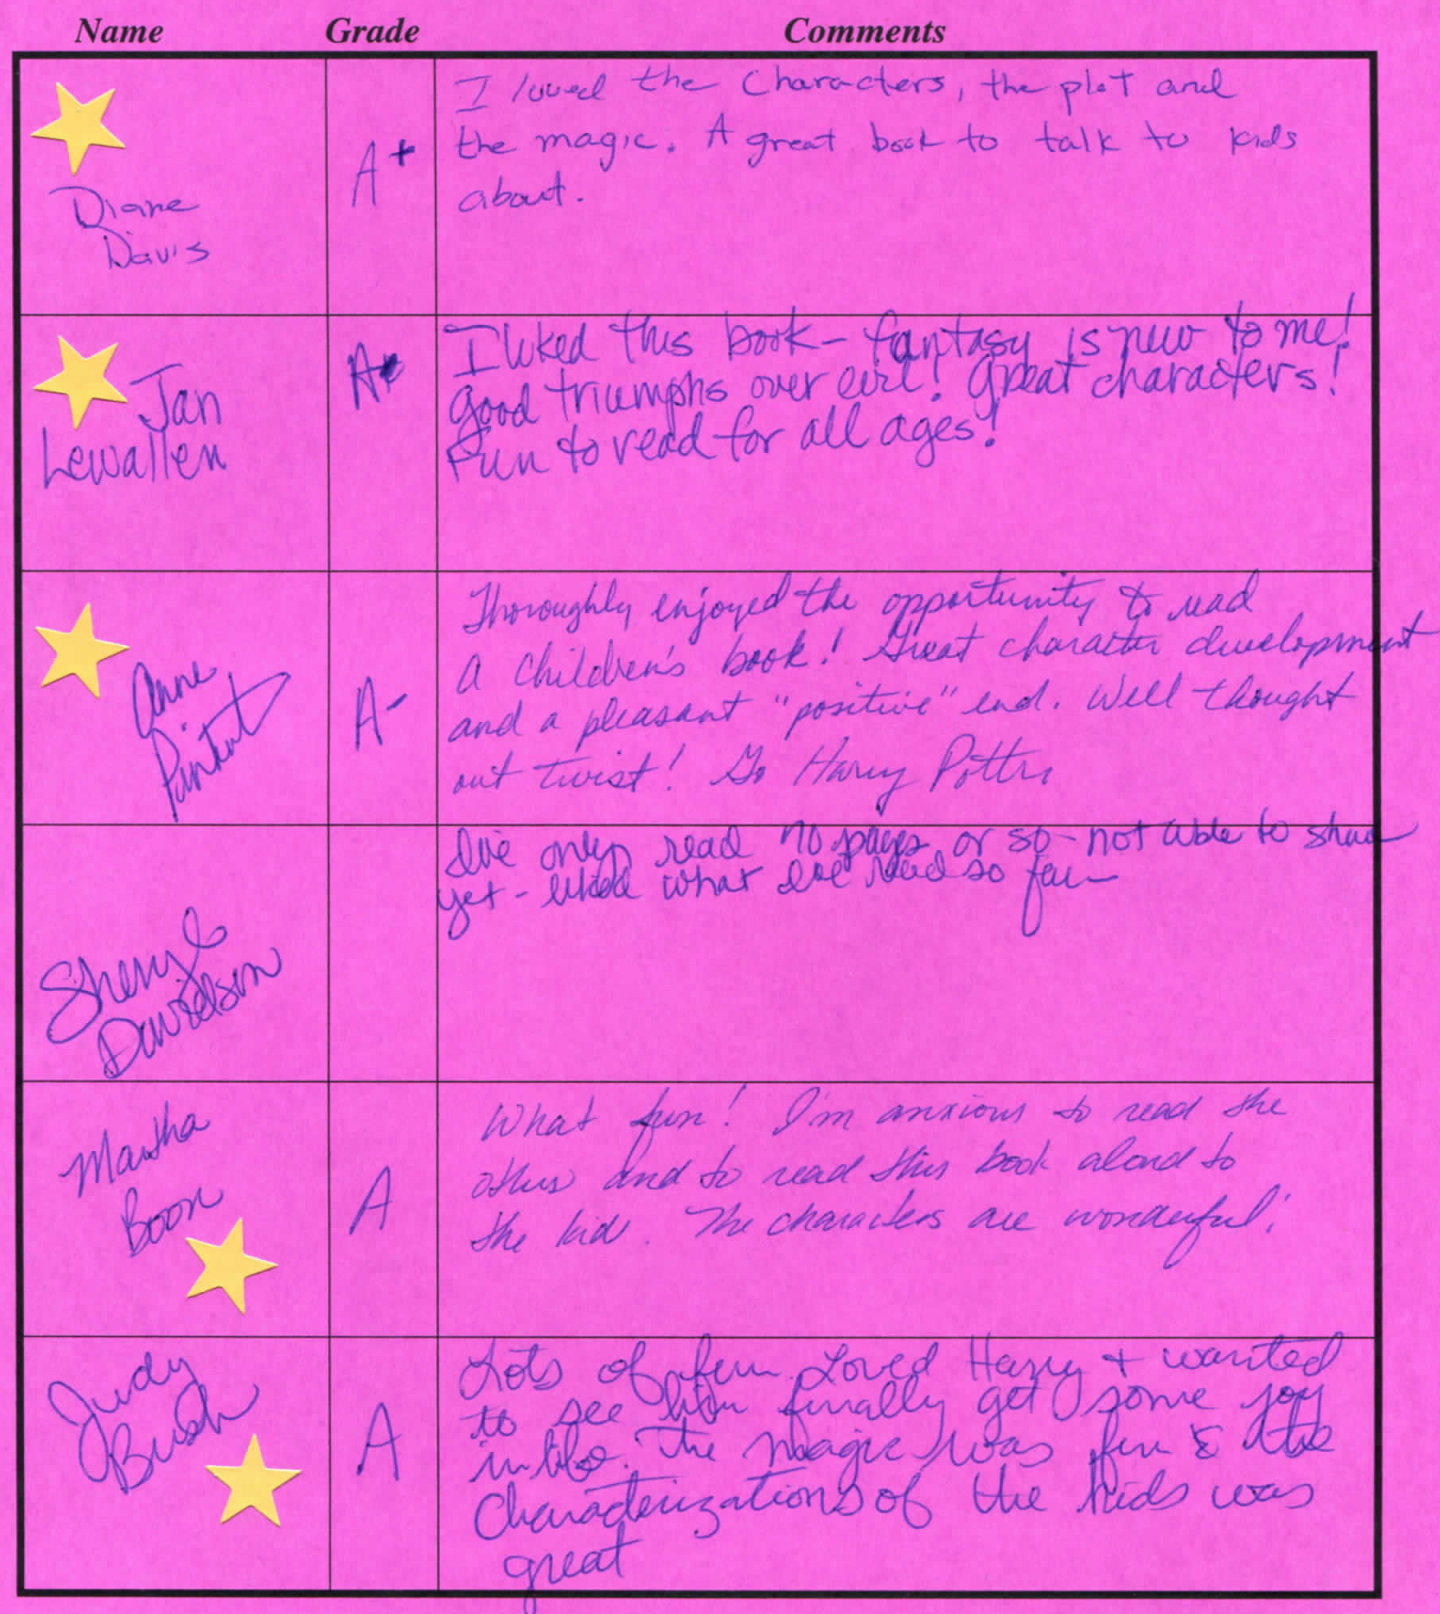 Name Grade Comments
Diane
Davis
A+
I loved the characters, the plot and
the magic. A great book to talk to kids
about.
Jan
Lewallen
A+
I liked this book - fantasy is new to me!
Good triumphs over evil! Great characters!
Fun to read for all ages!
Anne
A-
Thoroughly enjoyed the opportunity to read
a children's book! Great character development
and a pleasant "positive" end. Well thought
out twist! Go Harry Potter
Sheryl
Davidson
I've only read 70 pages or so - not able to share
yet - liked what I've read so far -
Martha
Boon
A
What fun! I'm anxious to read the
others and to read this book aloud to
the kid. The characters are wonderful!
Judy
Bush
A
Lots of fun. Loved Harry & wanted
to see him finally get some joy
in life. The magic was fun & the
characterizations of the kids was
great